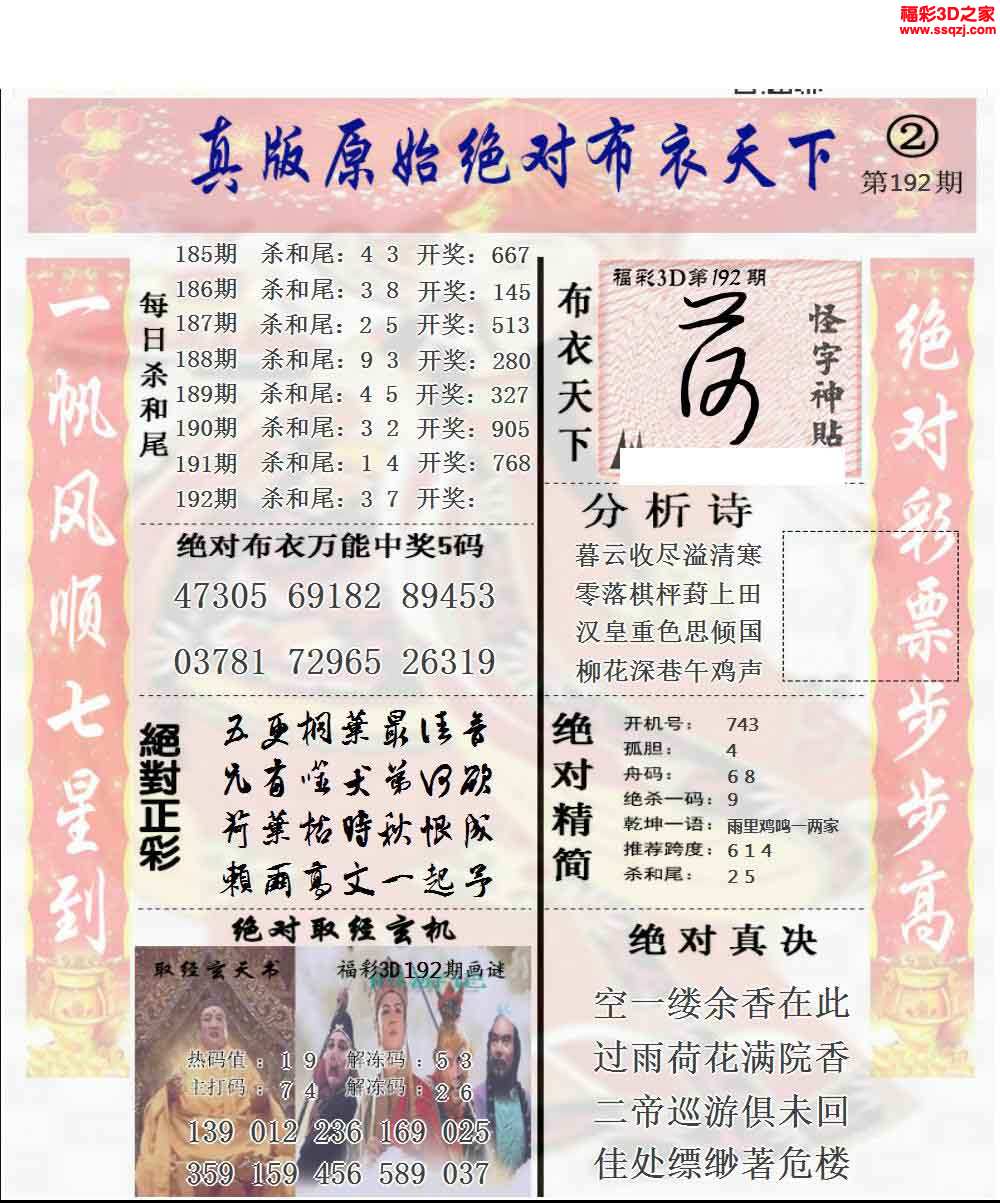 福彩3D之家
www.ssqzj.com
真版原始绝对布衣天下
②
第192期
一帆风顺七星到
每日杀和尾
185期 杀和尾：4 3 开奖：667
186期 杀和尾：3 8 开奖：145
187期 杀和尾：2 5 开奖：513
188期 杀和尾：9 3 开奖：280
189期 杀和尾：4 5 开奖：327
190期 杀和尾：3 2 开奖：905
191期 杀和尾：1 4 开奖：768
192期 杀和尾：3 7 开奖：
绝对布衣万能中奖5码
47305 69182 89453
03781 72965 26319
絕對正彩
五更桐葉最佳音
兄有噬犬弟何欲
荷葉枯時秋恨成
賴兩高文一起予
绝对取经玄机
取经玄天书
福彩3D192期画谜
热码值：1 9 解冻码：5 3
主打码：7 4 解冻码：2 6
139 012 236 169 025
359 159 456 589 037
布衣天下
福彩3D第192期
怪字神貼
分析诗
暮云收尽溢清寒
零落棋枰葑上田
汉皇重色思倾国
柳花深巷午鸡声
绝对精简
开机号： 743
孤胆： 4
舟码： 6 8
绝杀一码：9
乾坤一语：雨里鸡鸣一两家
推荐跨度：6 1 4
杀和尾： 2 5
绝对真决
空一缕余香在此
过雨荷花满院香
二帝巡游俱未回
佳处缥缈著危楼
绝对彩票步步高